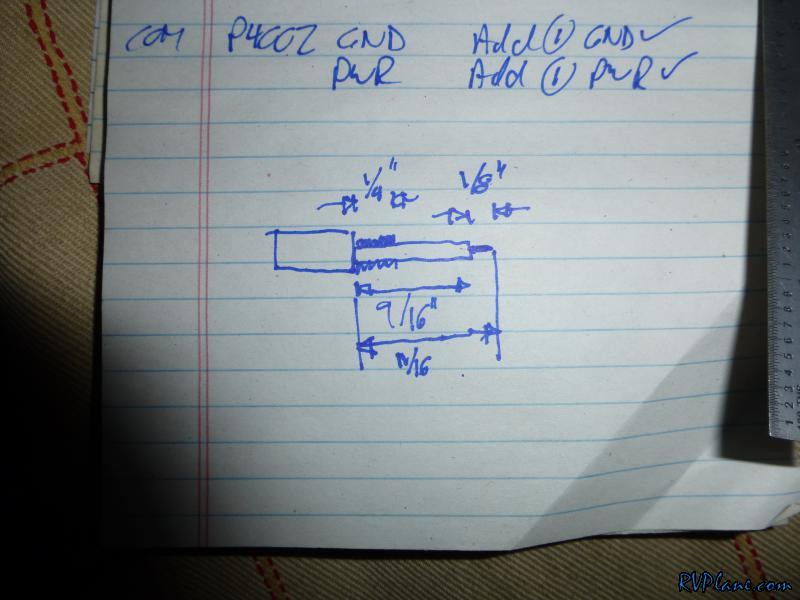 COM P4002 GND Add ① GND ✓
PWR Add ① PWR ✓
1/4" 1/8"
9/16"
RVPlane.com